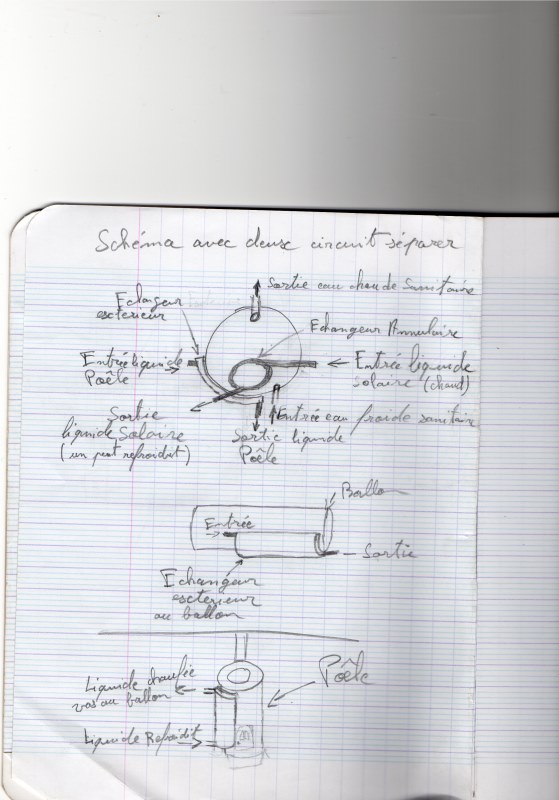 Schéma avec deux circuit séparer
Sortie eau chaude sanitaire
Echangeur
exterieur
Echangeur Annulaire
Entrée liquide
Poêle
Entrée liquide
solaire (chaud)
Sortie
liquide Solaire
(un peut refroidit)
Entrée eau froide sanitaire
Sortie liquide
Poêle
Ballon
Entrée
Sortie
Echangeur
exterieur
au ballon
Poêle
Liquide chaufée
vers au ballon
Liquide Refroidit